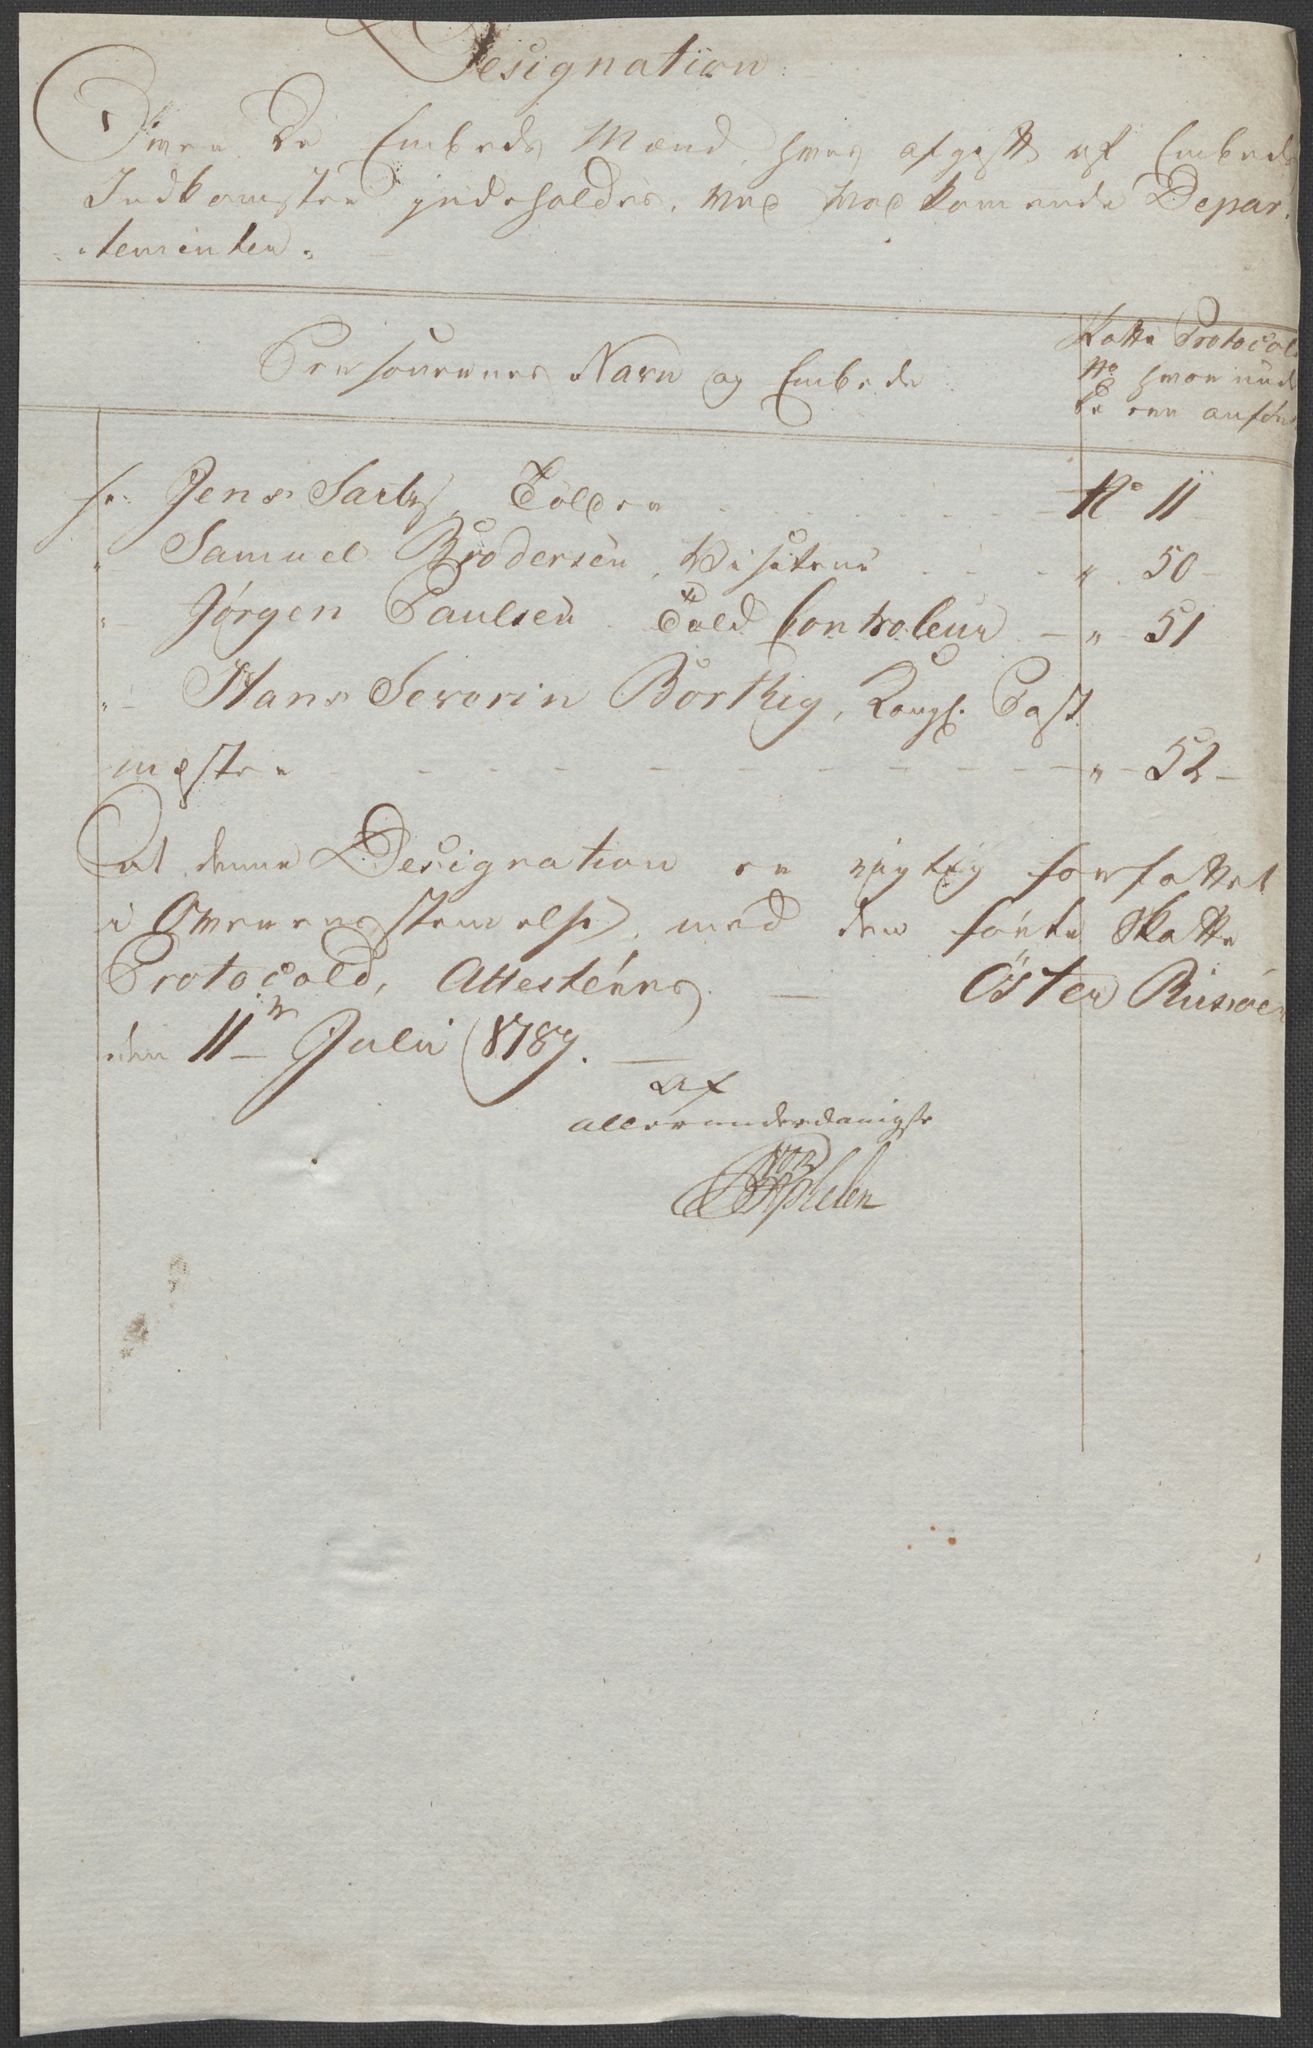 Designation
Over De Embeds Mænd, hves afgift af Embeds
Indkomster indeholdes, ved vedkommende Depar-
tementer.
Personernes Navn og Embede
Skatte Protocol
No hvorunder
De ere anført
Hr. Jens Tolder No 11
" Samuel Brodersen, Visiteur " 50
" Jørgen Paulsen Told Controleur " 51
" Hans Severin Borthig, Kongl. Post
mester " 52
At denne Designation er rigtig forfattet
i Overeensstemelse med den førte Skatte
Protocold, Attesteres Öster Riisøer
den 11te Julii 1789.
af
allerunderdanigst